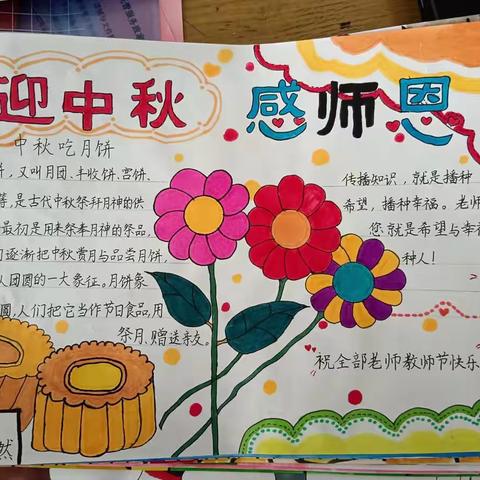 迎中秋
感师恩
中秋吃月饼
饼,又叫月团、丰收饼、宫饼、
等,是古代中秋祭拜月神的供
最初是用来祭奉月神的祭品,
们逐渐把中秋赏月与品尝月饼,
人团圆的一大象征。月饼象
圆,人们把它当作节日食品,用
祭月、赠送亲友。
传播知识,就是播种
希望,播种幸福。老师
您就是希望与幸福
种人!
祝全部老师教师节快乐
然